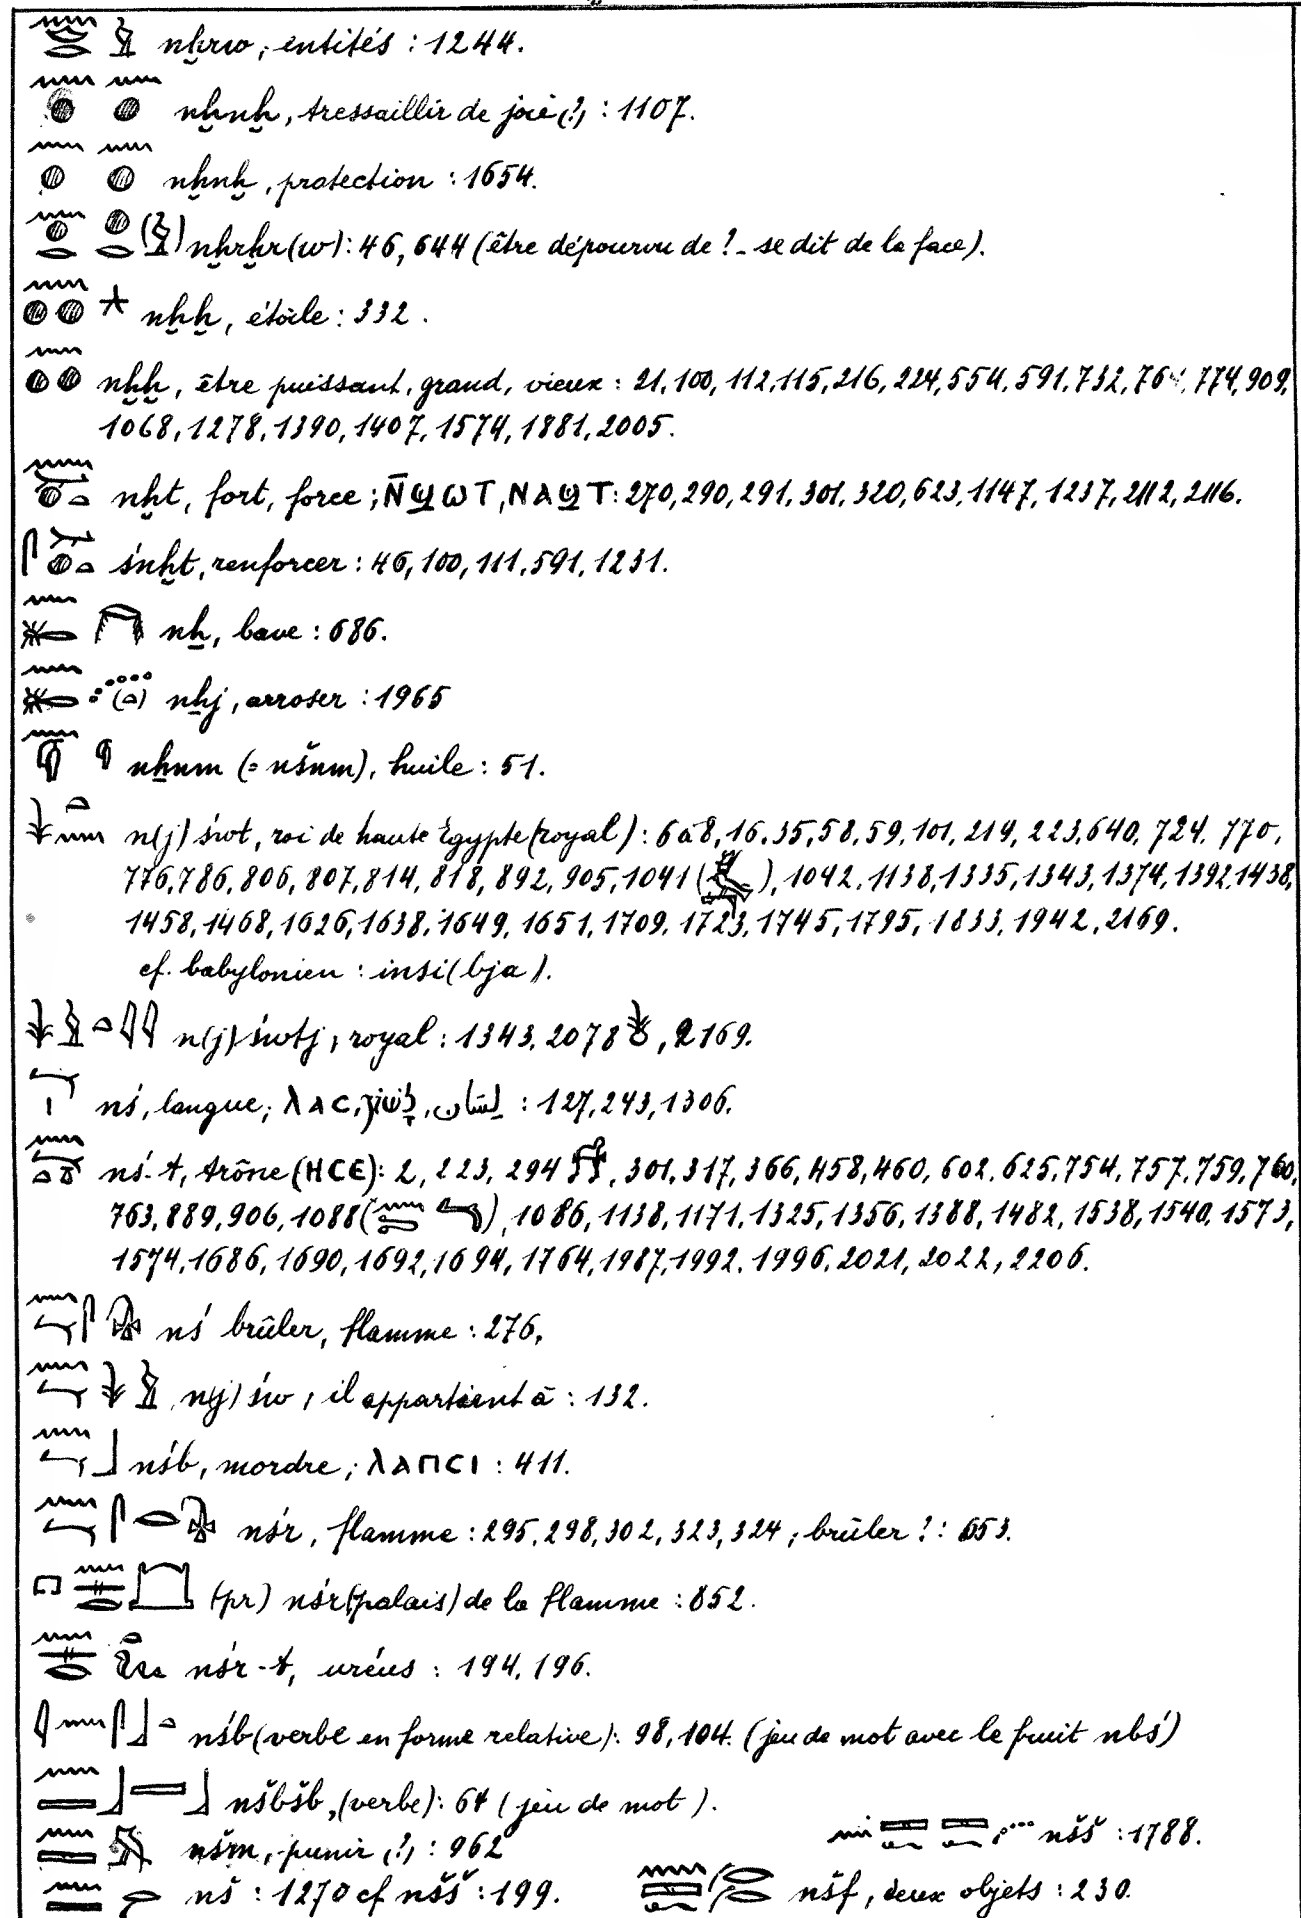 nḫrw, entités : 1244.
nḫnḫ, tressaillir de joie (?) : 1107.
nḫnḫ, protection : 1654.
nḫrḫr(w) : 46, 644 (être dépourvu de ? - se dit de la face).
nḫḫ, étoile : 332.
nḫḫ, être puissant, grand, vieux : 21, 100, 112, 115, 216, 224, 554, 591, 732, 774, 909,
1068, 1278, 1390, 1407, 1574, 1881, 2005.
nḫt, fort, force ; N̄ϢⲰⲦ, ⲚⲀϢⲦ : 270, 290, 291, 301, 320, 623, 1147, 1237, 2112, 2116.
śnḫt, renforcer : 46, 100, 111, 591, 1231.
nẖ, bave : 686.
nẖj, arroser : 1965
nẖnm (= nšnm), huile : 51.
n(j) śwt, roi de haute Égypte (royal) : 6 à 8, 16, 35, 58, 59, 101, 219, 223, 640, 724, 770,
776, 786, 806, 807, 814, 818, 892, 905, 1041 ( ), 1042, 1138, 1335, 1343, 1374, 1392, 1438,
1458, 1468, 1626, 1638, 1649, 1651, 1709, 1723, 1745, 1795, 1833, 1942, 2169.
cf. babylonien : insi(bja).
n(j) śwtj, royal : 1343, 2078 , 2169.
nś, langue ; ⲗⲁⲥ, לָשׁוֹן, لِسَان : 127, 243, 1306.
nś-t, trône (ⲎⲤⲈ) : 2, 223, 294 , 301, 317, 366, 458, 460, 602, 625, 754, 757, 759, 760,
763, 889, 906, 1088 ( ), 1086, 1138, 1171, 1325, 1356, 1388, 1482, 1538, 1540, 1573,
1574, 1686, 1690, 1692, 1694, 1764, 1987, 1992, 1996, 2021, 2022, 2206.
nś brûler, flamme : 276,
n(j) św, il appartient à : 132.
nśb, mordre ; ⲗⲁⲡⲥⲓ : 411.
nśr, flamme : 295, 298, 302, 323, 324 ; brûler ? : 653.
(pr) nśr (palais) de la flamme : 852.
nśr-t, uréus : 194, 196.
nśb (verbe en forme relative) : 98, 104. (jeu de mot avec le fruit nbś)
nšbšb, (verbe) : 64 (jeu de mot).
nšm, punir (?) : 962
nšš : 1788.
nš : 1270 cf nšš : 199.
nšf, deux objets : 230.